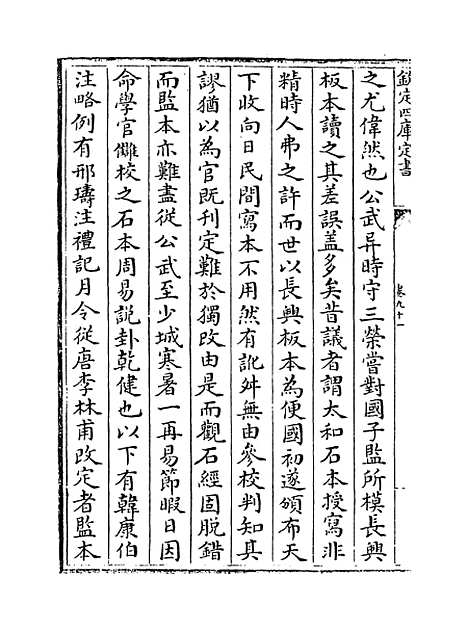 欽定四庫全書
卷九十一
之尤偉然也公武异時守三榮嘗對國子監所模長興
板本讀之其差誤蓋多矣昔議者謂太和石本授寫非
精時人弗之許而世以長興板本為便國初遂頒布天
下收向日民間寫本不用然有訛舛無由參校判知其
謬猶以為官既刊定難於獨改由是而觀石經固脫錯
而監本亦難盡從公武至少城寒暑一再易節暇日因
命學官讎校之石本周易說卦乾健也以下有韓康伯
注略例有邢璹注禮記月令從唐李林甫改定者監本